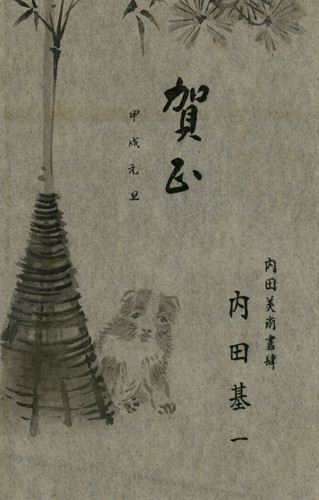 賀正
甲戌元旦
内田美術書肆
内田基一